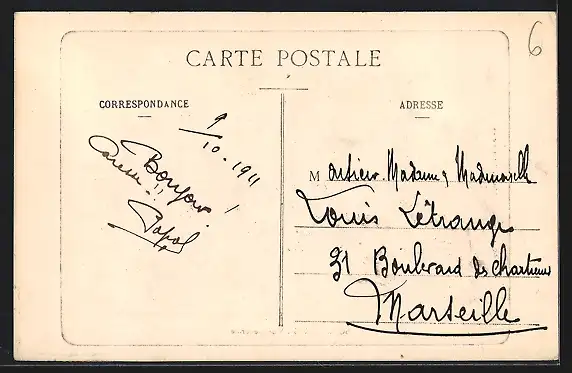 6
CARTE POSTALE
CORRESPONDANCE
ADRESSE
9/10-1911
Bonjour!!
Papol
Monsieur Madame, Mademoiselle
Louis Létrange
31 Boulevard des Chartreux
Marseille